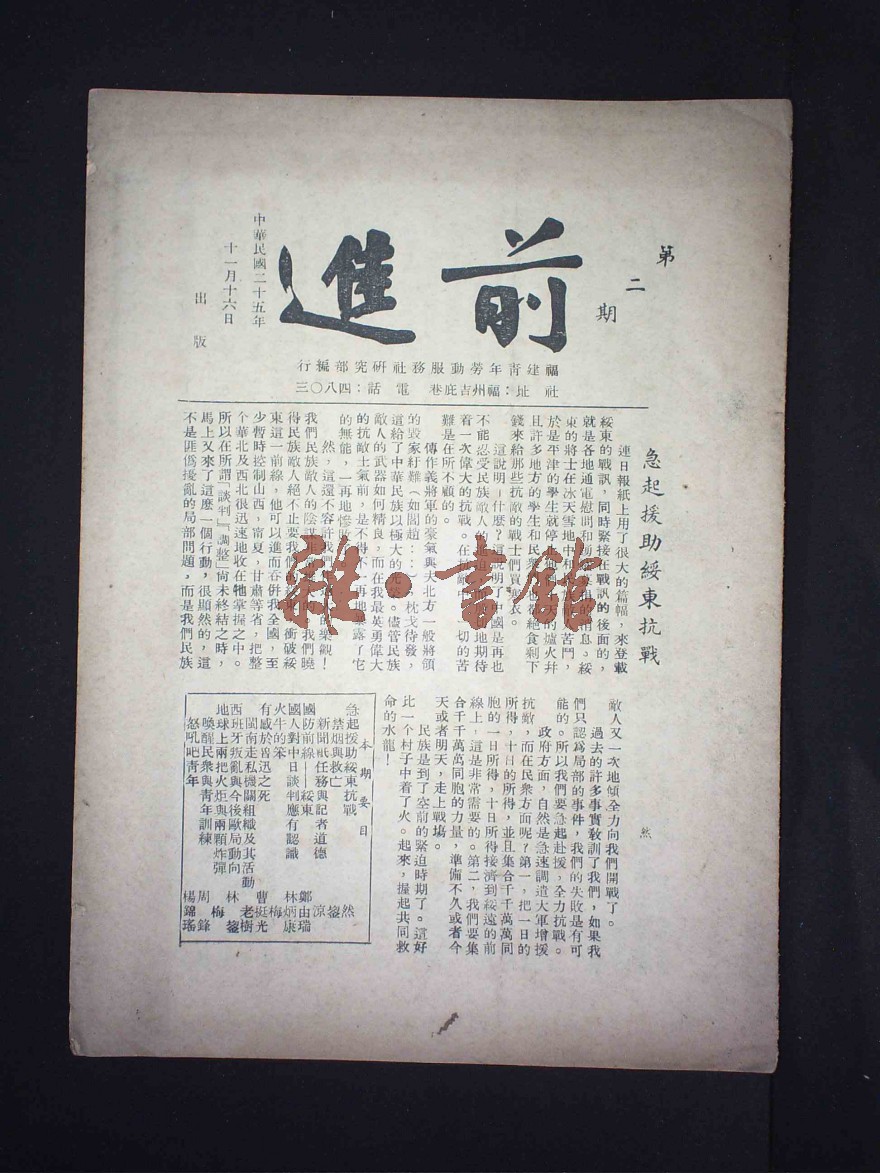 第二期
前進
中華民國二十五年
十一月十六日
出版
福建青年勞動服務社研究部編行
社址：福州吉庇巷 電話：四八〇三
急起援助綏東抗戰
然
連日報紙上用了很大的篇幅，來登載
綏東的戰訊，同時緊接在戰訊的後面的，
就是各地通電慰問和
消息。綏
東的將士在冰天雪地中和
苦鬥，
於是平津的學生就停止
天的爐火幷
且許多地方的學生和民衆
絕食剩下
錢來給那些抗敵的戰士們買
衣。
這說明一什麼？這說明了中國是再也
不能忍受民族敵人的
地期待
着一次偉大的抗戰。在
切的苦
難是在所不顧的。
傳作義將軍的豪氣與夫北方一般將領
的毀家紓難（如閻趙
枕戈待發，
這給了中華民族以極大的光
。儘管民族
敵人的武器如何精良，而在我最英勇偉大
的抗敵士氣前，是不得不
再地暴露了它
的無能，一再地慘敗
然，這還不容許我們
樂觀！
我們民族敵人的陰謀
我們曉
得民族敵人絕不止要我們的綏東，衝破綏
東這一前線，他可以進而吞併我全國，至
少暫時控制山西，甯夏，甘肅等省，把整
個華北及西北很迅速地收在牠掌握之中。
所以在所謂『談判』『調整』尙未終結之時，
馬上又來了這麼一個行動，很顯然的，這
不是匪僞擾亂的局部問題，而是我們民族
敵人又一次地傾全力向我們開戰了。
過去的許多事實敎訓了我們，如果我
們只認爲局部的事件，我們的失敗是有可
能的。所以我們要急起赴援，全力抗戰。
政府方面，自然是急速調遣大軍增援
抗敵，而在民衆方面呢？第一，把一日的
所得，十日的所得，並且集合千千萬萬同
胞的一日所得，十日所得接濟到綏遠的前
線上，這是非常需要的。第二，我們要集
合千千萬萬同胞的力量，準備不久或者今
天或者明天，走上戰塲。
民族是到了空前的緊迫時期了。這好
比一个村子中着了火。起來，握起共同救
命的水龍！
本期要目
急起援助綏東抗戰 然
禁烟與救亡
新聞紙任務與記者道德
國防前線——綏東
國人對中日談判應有認識
火牛的笨
有感於魯迅之死
閩南走私機關組織及其活動
西班牙叛亂與今後歐局動向
地球上兩把火炬與兩顆炸彈
喚醒民衆與靑年訓練 周梅鋒
怒吼吧靑年 楊錦瑤
雜·書館